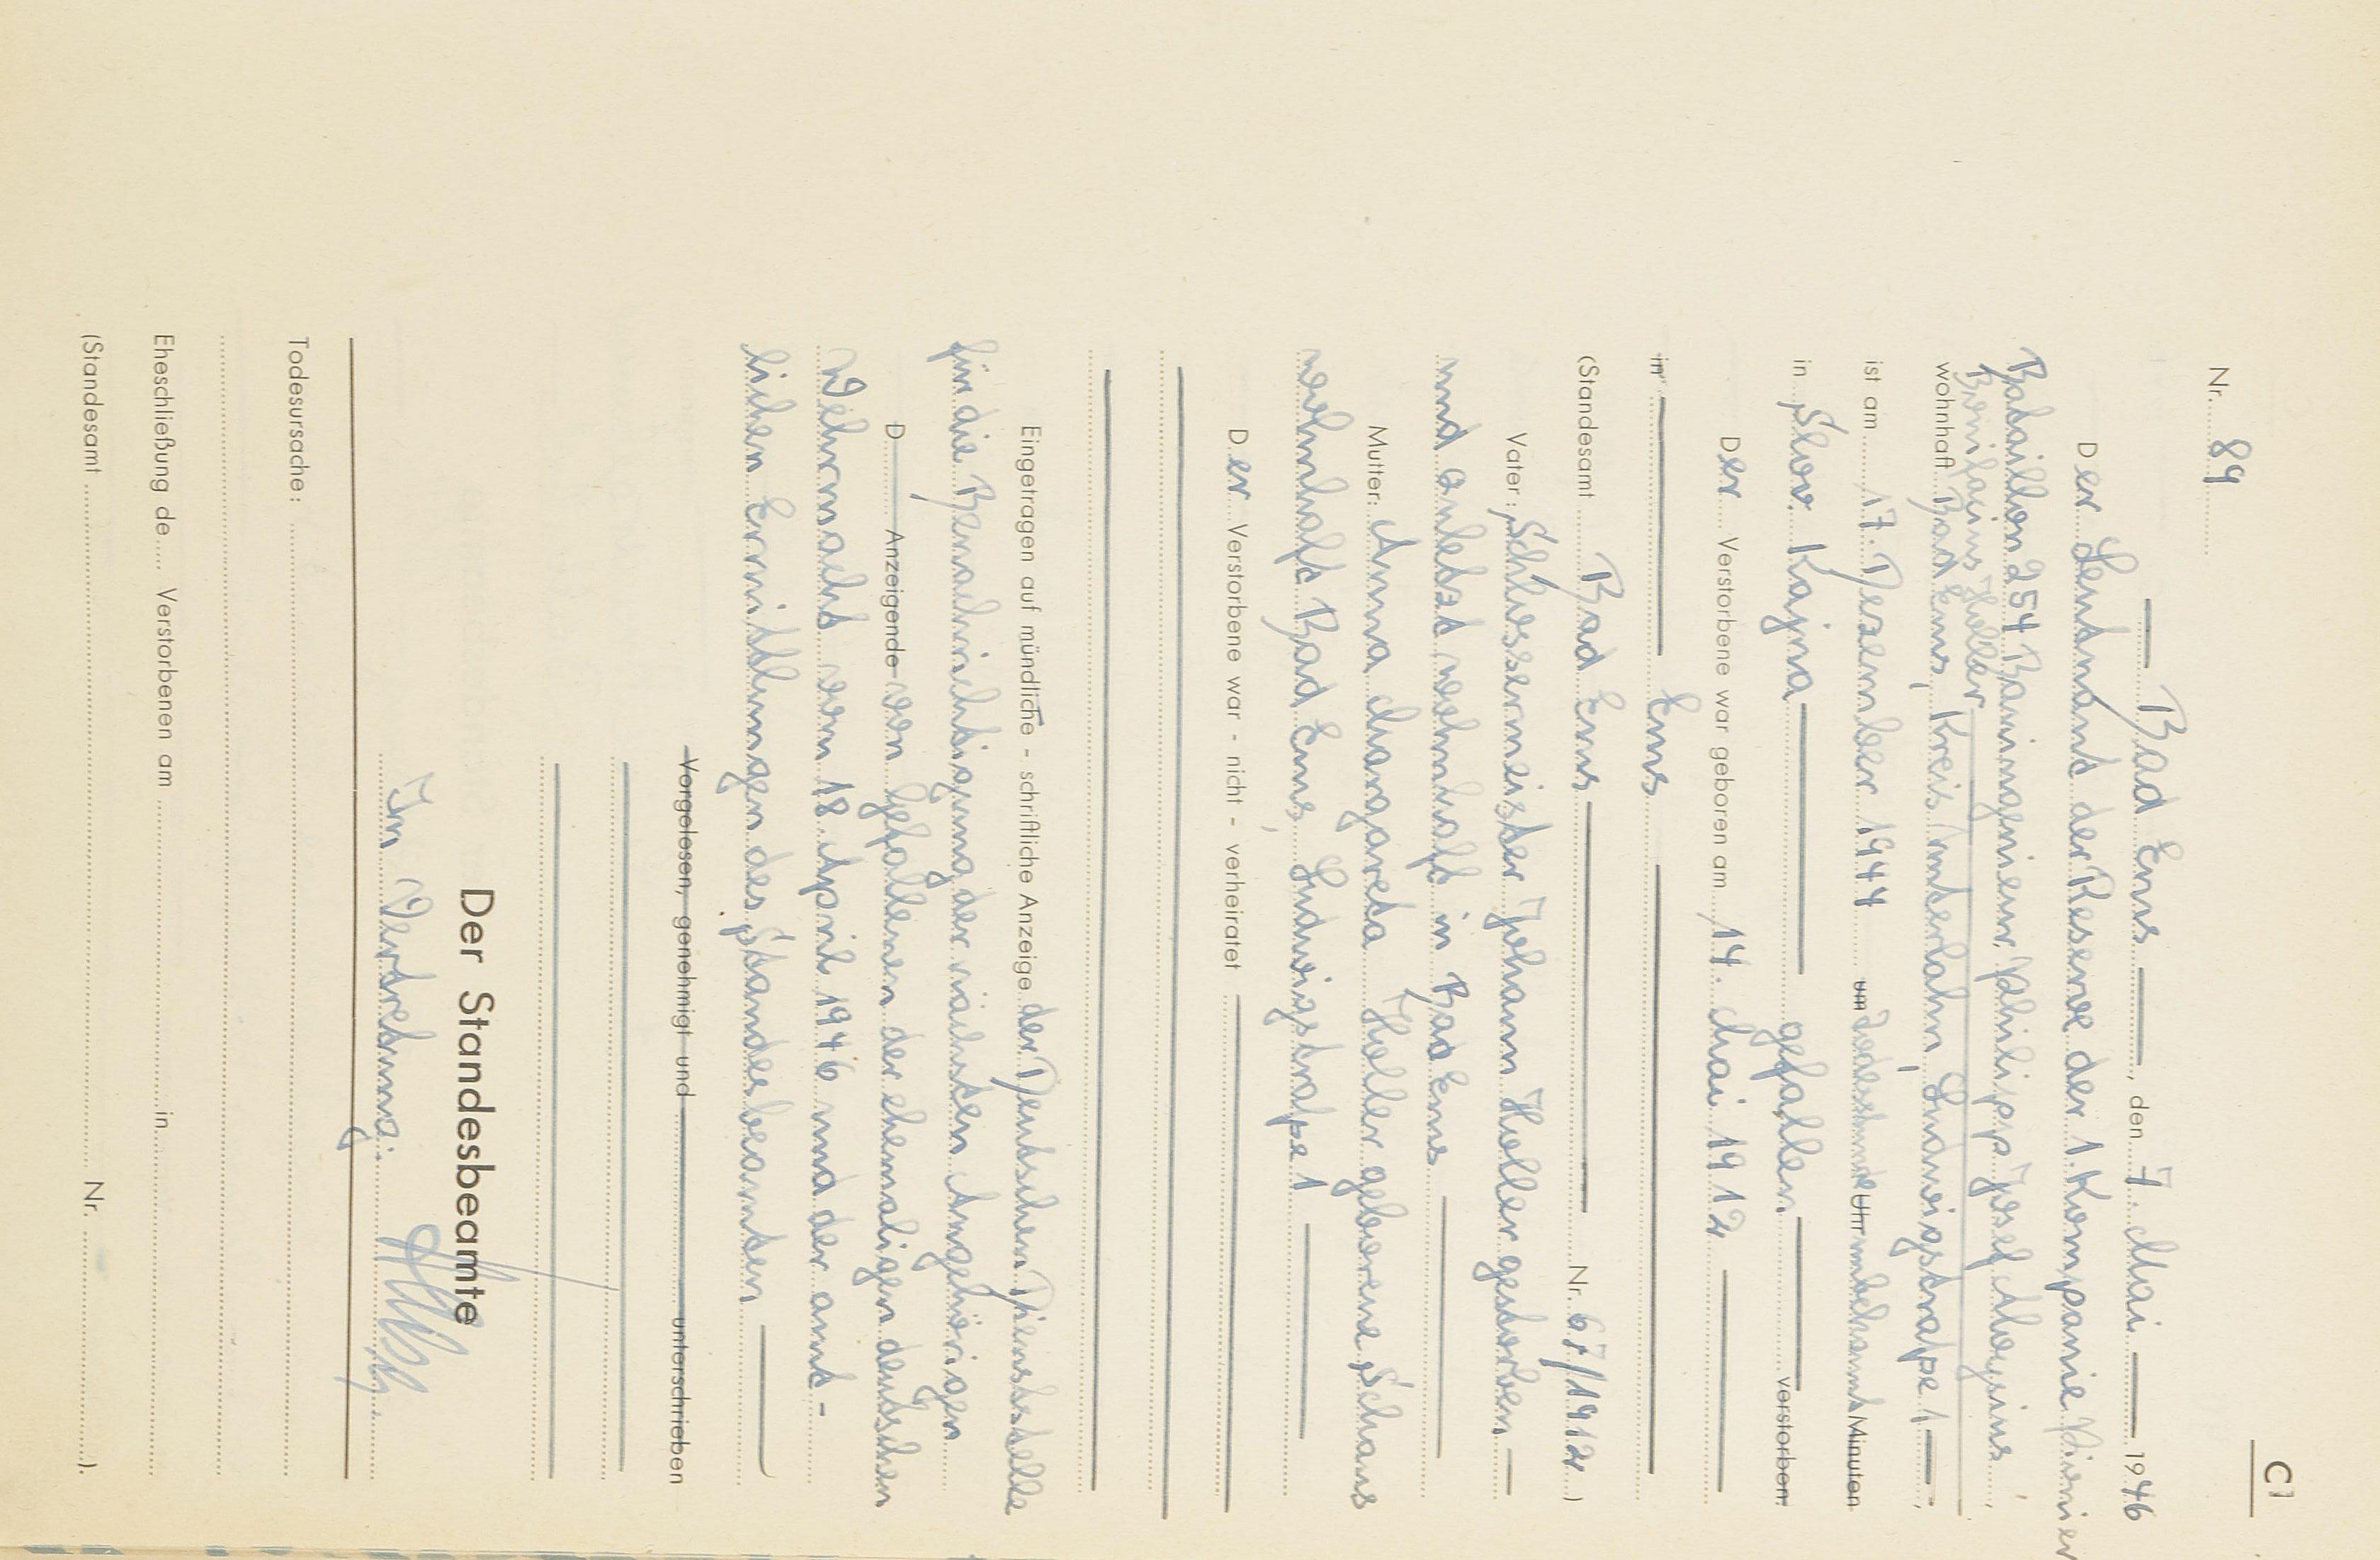 C1
Nr. 89
Bad Ems, den 7. Mai 1946
Der Leutnant der Reserve der 1. Kompanie Pionier
Bataillon 254 Bauingenieur Philipp Josef Aloysius
Bonifaius Holler
wohnhaft Bad Ems, Kreis Unterlahn, Ludwigstraße 1,
ist am 17. Dezember 1944 um Todesstunde Uhr unbekannt Minuten
in Slov. Kajna gefallen verstorben.
Der Verstorbene war geboren am 14. Mai 1912
in Ems
(Standesamt Bad Ems Nr. 67/1912)
Vater: Schlossermeister Johann Holler gestorben
und zuletzt wohnhaft in Bad Ems
Mutter: Anna Margareta Holler geborene Schaus
wohnhaft Bad Ems, Ludwigstraße 1
Der Verstorbene war - nicht - verheiratet
Eingetragen auf mündliche - schriftliche Anzeige der Deutschen Dienststelle
für die Benachrichtigung der nächsten Angehörigen
D Anzeigende von Gefallenen der ehemaligen deutschen
Wehrmacht vom 18. April 1946 und der amt-
lichen Ermittlungen des Standesbeamten
Vorgelesen, genehmigt und unterschrieben
Der Standesbeamte
In Vertretung:
Todesursache:
Eheschließung de Verstorbenen am in
(Standesamt Nr. ).